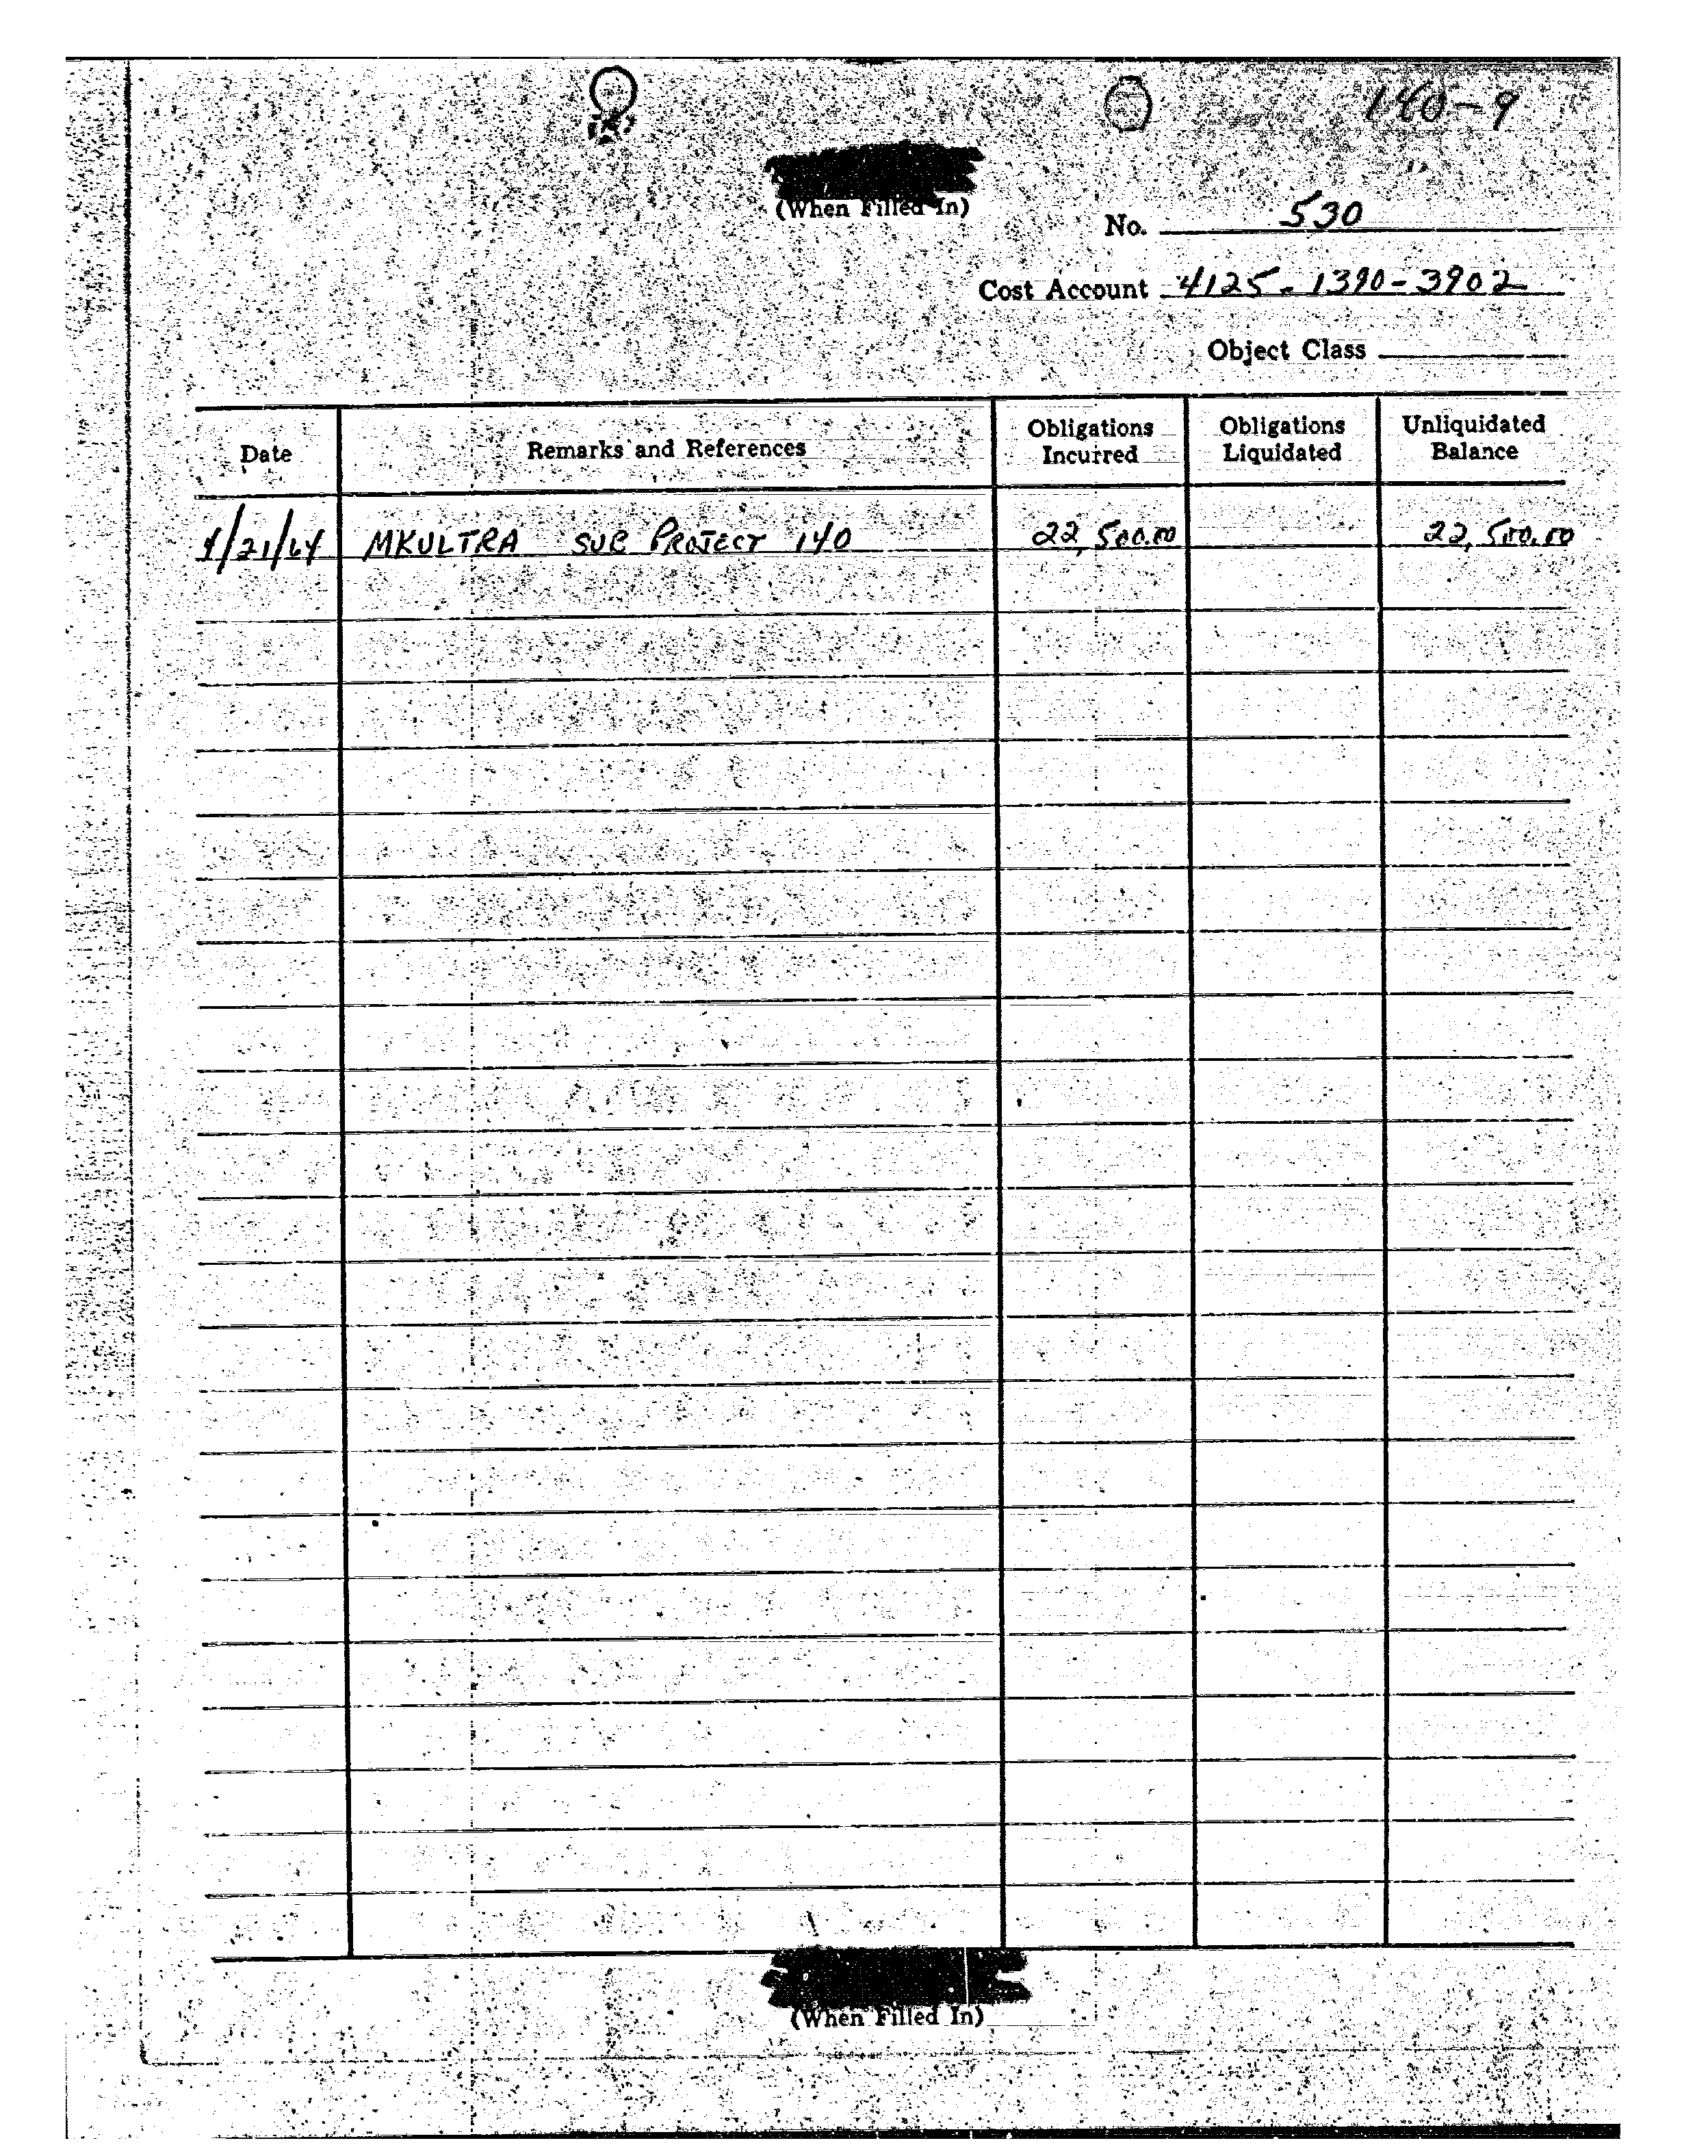 140-9
(When Filled In)
No. 530
Cost Account 4125-1390-3902
Object Class
Date Remarks and References Obligations Incurred Obligations Liquidated Unliquidated Balance
4/21/64 MKULTRA SUB PROJECT 140 22,500.00 22,500.00
(When Filled In)